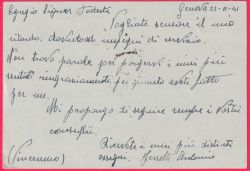 Egregio Signor Podestà
Genova 22-11-41
Vogliate scusare il mio
ritardo, dovuto ad impegni di servizio.
Non trovo parole per porgervi i miei più
sentiti ringraziamenti, per quanto avete fatto
per me.
Mi propongo di seguire sempre i Vostri
consigli.
Ricevete i miei più distinti
ossequi.
(Vincenzo)